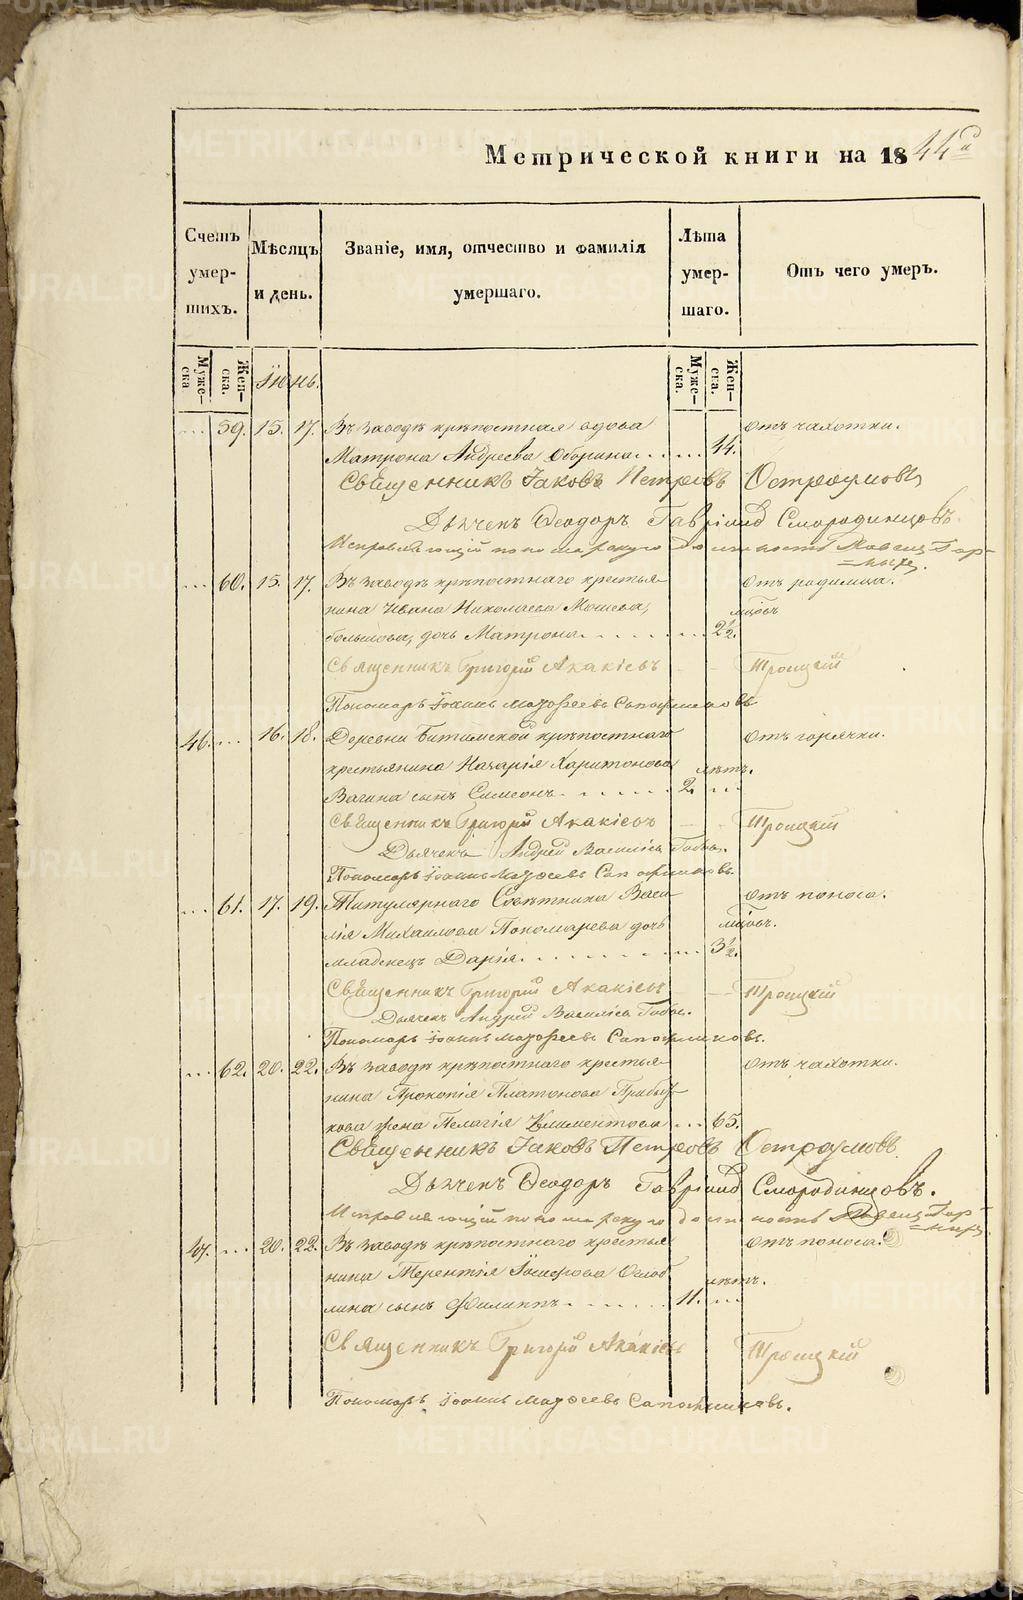 Метрической книги на 1844й
Счетъ умер- шихъ.
Мѣсяцъ и день.
Званіе, имя, отчество и фамилія умершаго.
Лѣта умер- шаго.
Отъ чего умеръ.
Муже- ска
Жен- ска.
Іюнь.
Муже- ска.
Жен- ска.
... 59. 15. 17. Въ заводѣ крѣпостная вдова отъ чахотки.
Матрона Андреева Оборина ... 44.
Священникъ Іаковъ Петровъ Остроумовъ
Дьячекъ Ѳеодоръ Гавріиловъ Смородинцовъ.
Исправляющій пономарскую должность
... 60. 15. 17. Въ заводѣ крѣпостнаго крестья- отъ родимца.
нина Ивана Николаева мцовъ
дочь Матрона ... 2½.
Священникъ Григорій Акакіевъ Троицкій
Пономарь Іоаннъ Матѳеевъ Сапожниковъ
46. ... 16. 18. Деревни Битимской крѣпостнаго отъ горячки.
крестьянина Назарія Харитонова лѣтъ.
Вагина сынъ Симеонъ ... 2. ...
Священникъ Григорій Акакіевъ Троицкій
Дьячекъ Андрей Василіевъ
Пономарь Іоаннъ Матѳеевъ Сапожниковъ.
... 61. 17. 19. Титулярнаго Совѣтника Васи- отъ поноса.
лія Михаилова Пономарева дочь мцовъ.
младенецъ Дарія ... 3½.
Священникъ Григорій Акакіевъ Троицкій
Дьячекъ Андрей Василіевъ
Пономарь Іоаннъ Матѳеевъ Сапожниковъ.
... 62. 20. 22. Въ заводѣ крѣпостнаго крестья- отъ чахотки.
нина Прокопія Платонова Прибыт-
кова жена Пелагія Климентова ... 65.
Священникъ Іаковъ Петровъ Остроумовъ.
Дьячекъ Ѳеодоръ Гавріиловъ Смородинцовъ.
Исправляющій пономарскую должность
47. ... 20. 22. Въ заводѣ крѣпостнаго крестья отъ поноса.
нина Терентія Іосифова лѣтъ.
сынъ Филиппъ ... 11. ...
Священникъ Григорій Акакіевъ Троицкій
Пономарь Іоаннъ Матѳеевъ Сапожниковъ.
METRIKI.GASO-URAL.RU